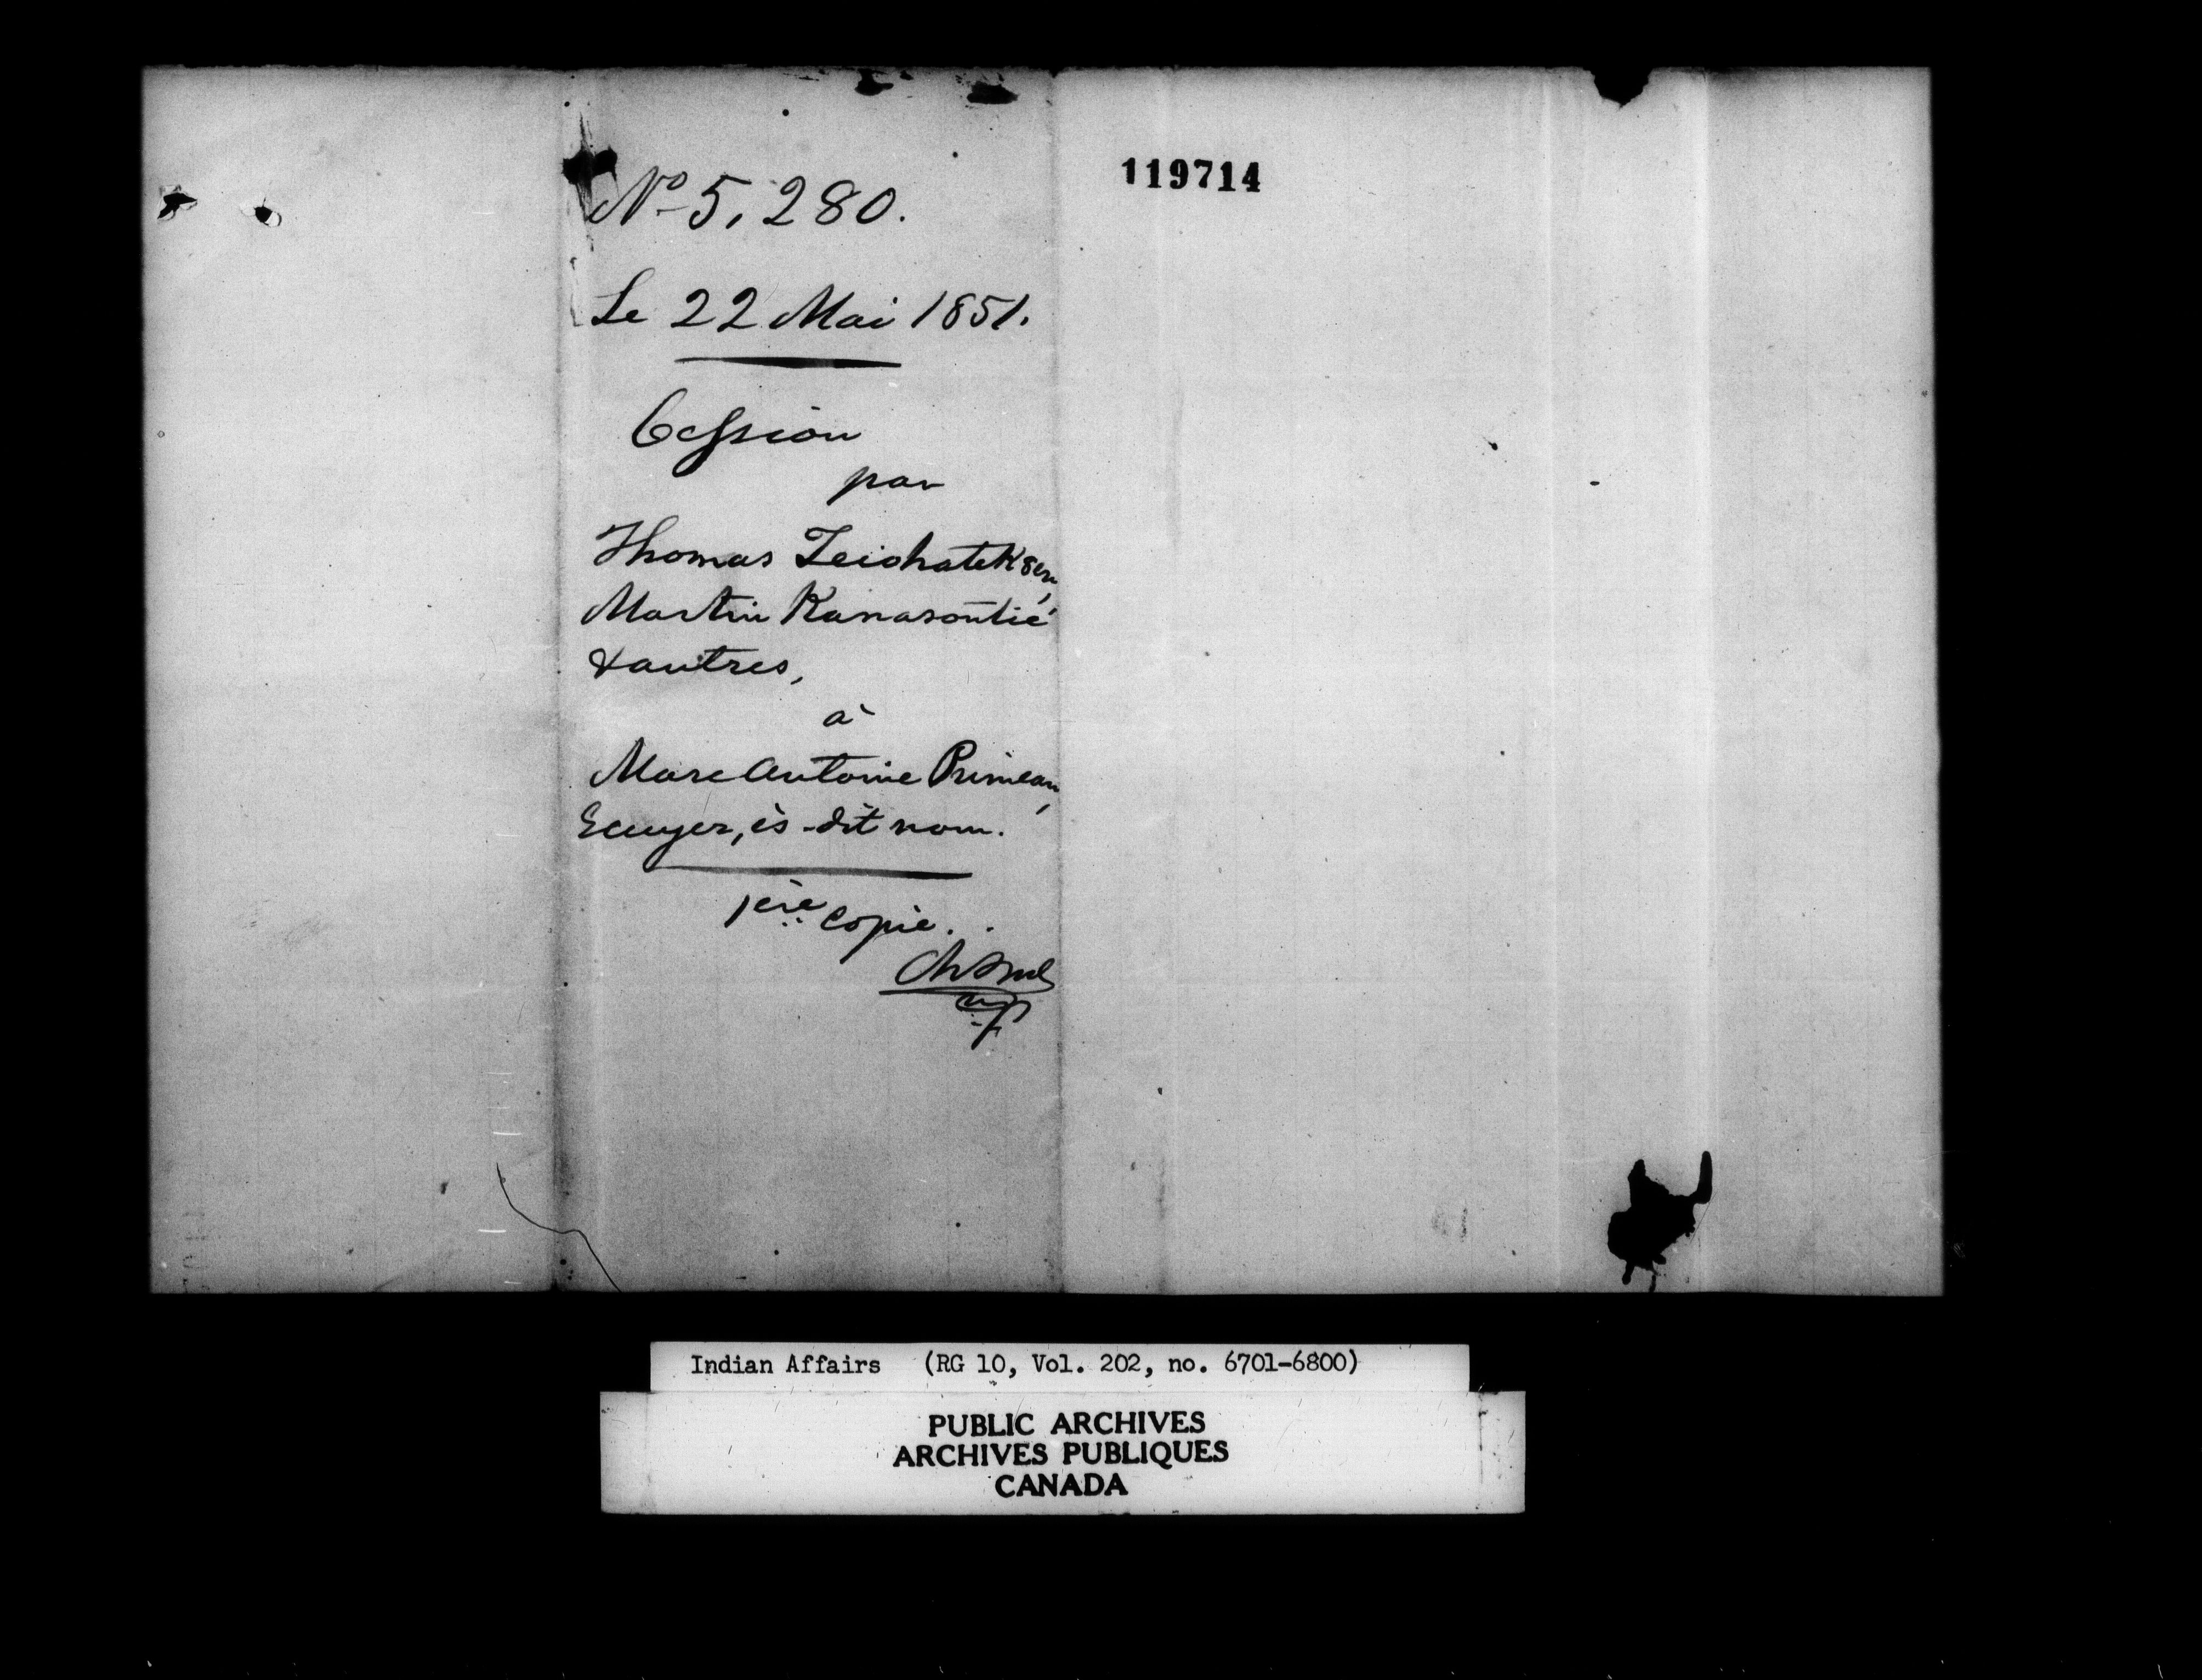 No 5,280.
119714
Le 22 Mai 1851.
Cession
par
Thomas Teiohatek8en,
Martin Kanasontié,
& autres,
à
Marc Antoine Primeau,
Ecuyer, ès-dit nom.
1ère Copie.
Indian Affairs (RG 10, Vol. 202, no. 6701-6800)
PUBLIC ARCHIVES
ARCHIVES PUBLIQUES
CANADA